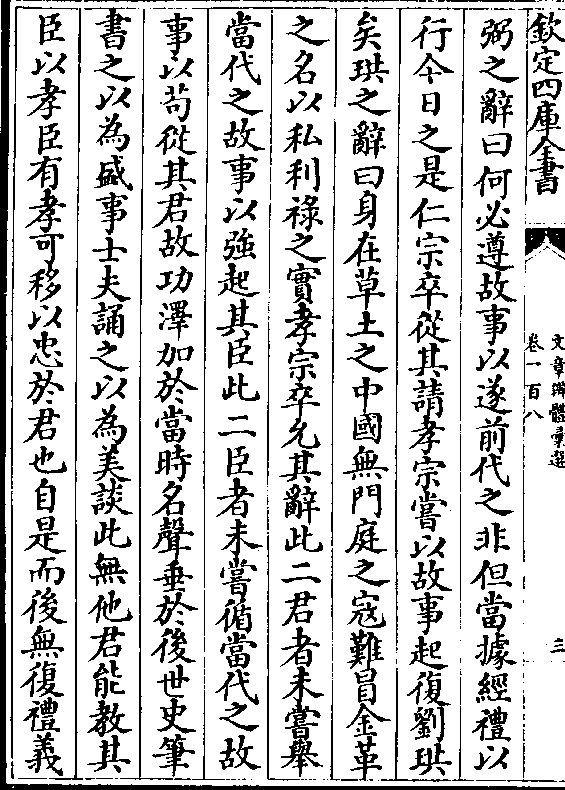 欽定四庫全書
文章辨體彙選
卷一百八
三
弼之辭曰何必遵故事以遂前代之非但當據經禮以
行今日之是仁宗卒從其請孝宗嘗以故事起復劉珙
矣珙之辭曰身在草土之中國無門庭之寇難冒金革
之名以私利祿之實孝宗卒允其辭此二君者未嘗舉
當代之故事以強起其臣此二臣者未嘗循當代之故
事以苟從其君故功澤加於當時名聲垂於後世史筆
書之以為盛事士夫誦之以為美談此無他君能教其
臣以孝臣有孝可移以忠於君也自是而後無復禮義